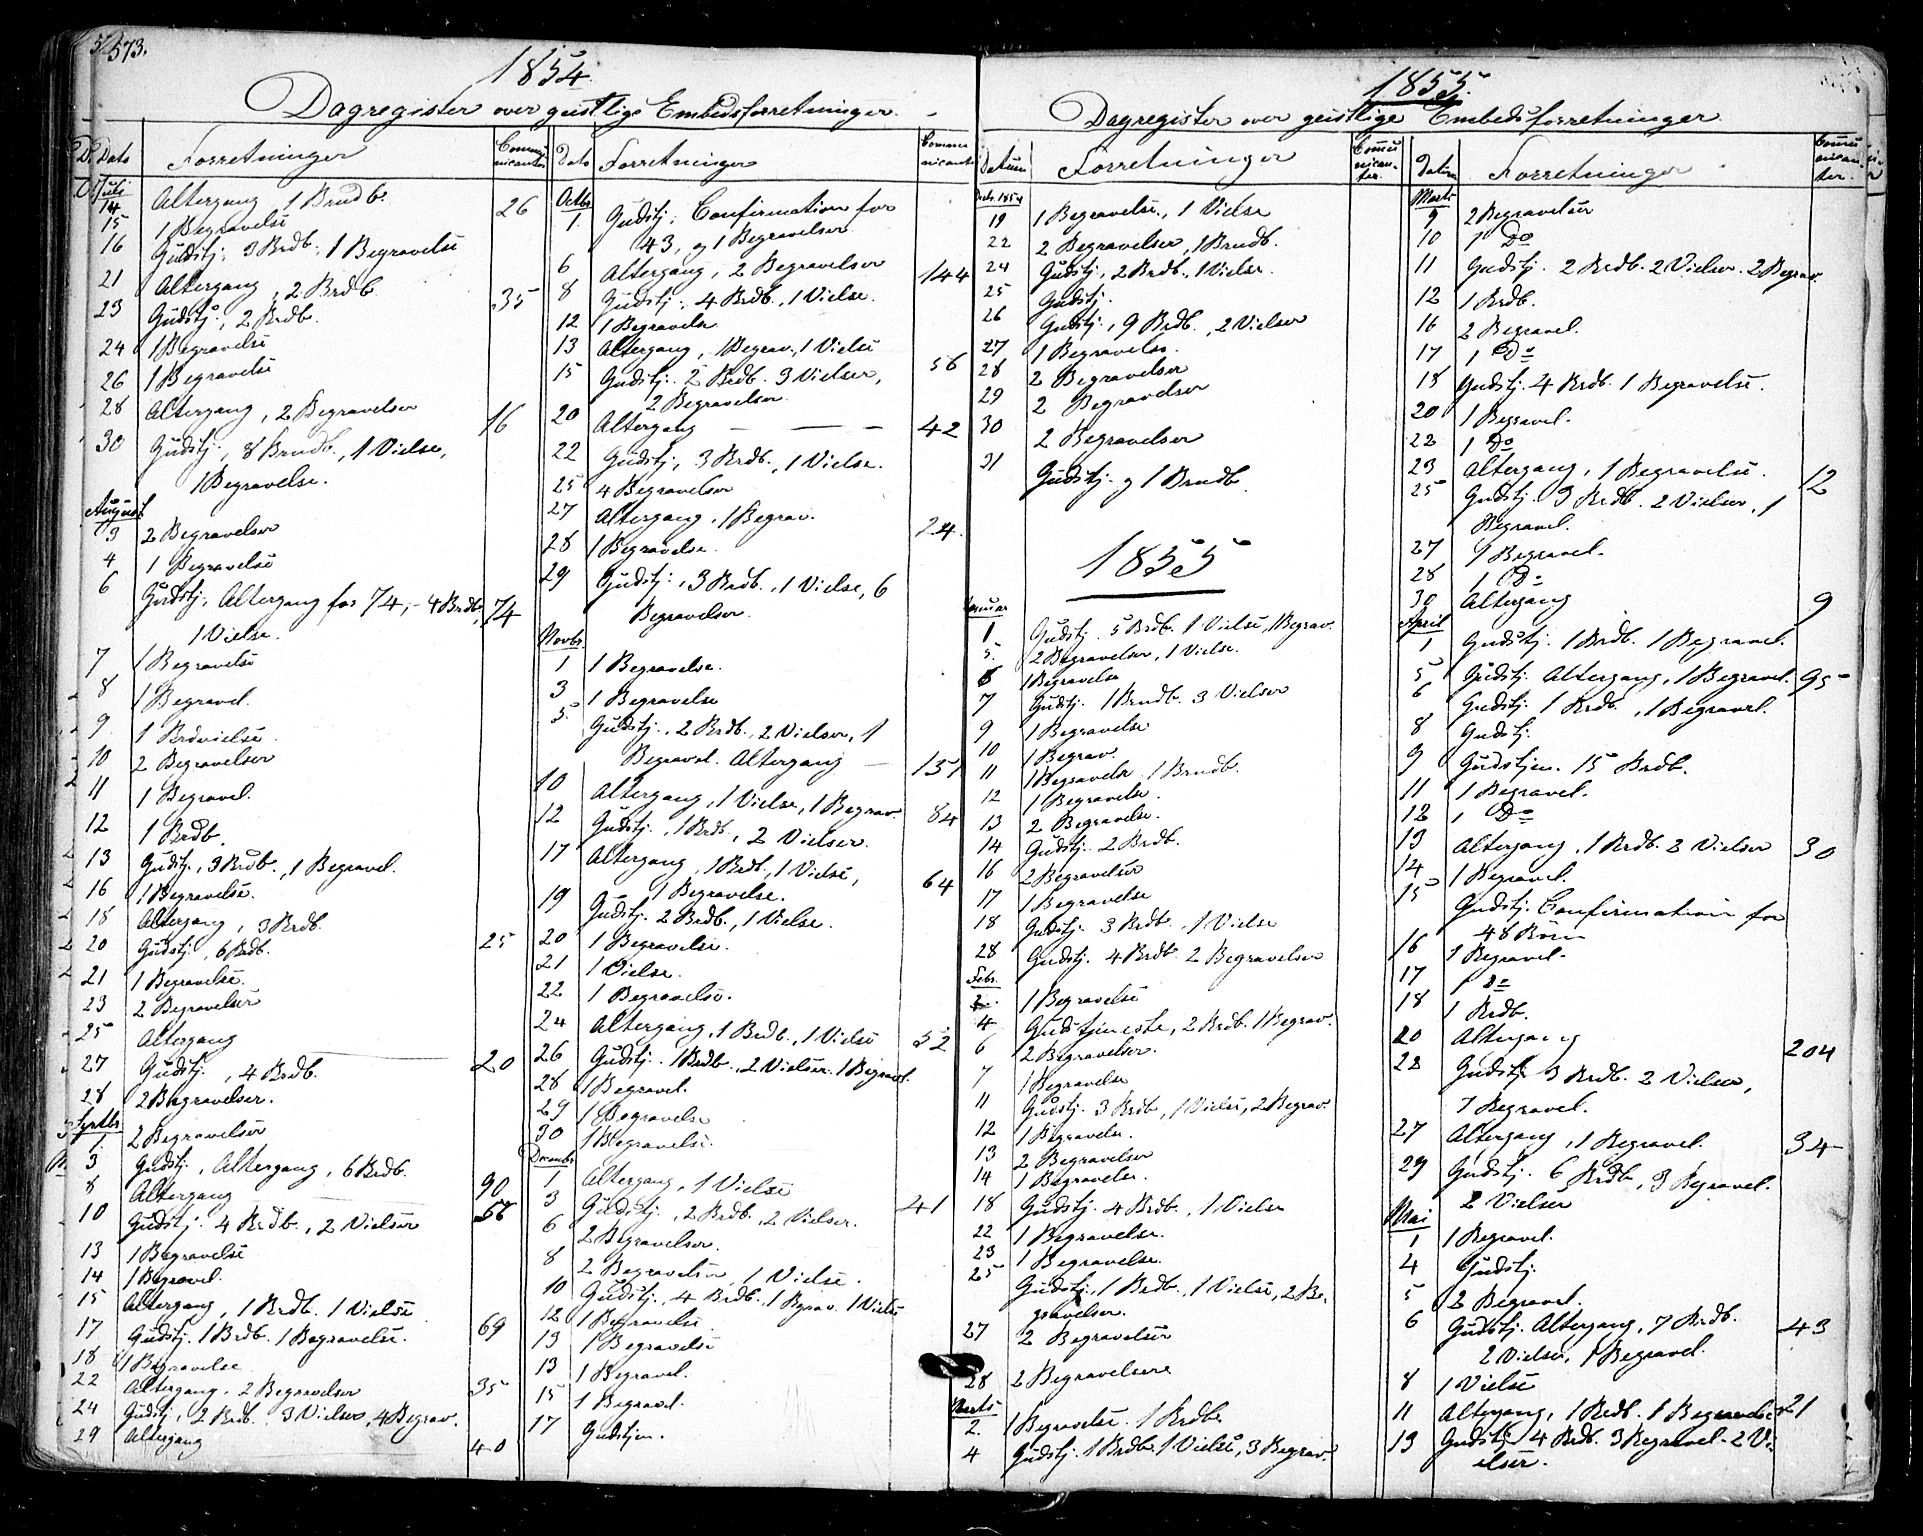 573.
1854.
Dagregister over geistlige Embedsforretninger.
Dato
Forretninger
Communicanter
Juli
14 Altergang 1 Brndb. 26
15 1 Begravelse
16 Gudstj: 3 Brdb. 1 Begravelse
21 Altergang, 2 Brdb 35
23 Gudstj., 2 Brdb.
24 1 Begravelse
26 1 Begravelse
28 Altergang, 2 Begravelser 16
30 Gudstj., 8 Brndb., 1 Vielse,
1 Begravelse.
August
3 2 Begravelser
4 1 Begravelse
6 Gudstj. Altergang for 74, - 4 Brdb, 74
1 Vielse.
7 1 Begravelse
8 1 Begravel.
9 1 Brdvielse
10 2 Begravelser
11 1 Begravel.
12 1 Brdb.
13 Gudstj., 3 Brdb., 1 Begravel.
16 1 Begravelse.
18 Altergang, 3 Brdb. 25
20 Gudstj., 6 Brdb.
21 1 Begravelse.
23 2 Begravelser
25 Altergang 20
27 Gudstj., 4 Brdb.
28 2 Begravelser.
Septbr
1. 2 Begravelser
3 Gudstj., Altergang, 6 Brdb. 90
8 Altergang 58
10 Gudstj. 4 Brdb., 2 Vielser
13 1 Begravelse
14 1 Begravel.
15 Altergang, 1 Brdb. 1 Vielse 69
17 Gudstj. 1 Brdb. 1 Begravelse.
18 1 Begravelse
22 Altergang. 2 Begravelser 35
24 Gudstj., 2 Brdb. 3 Vielser, 4 Begrav.
29 Altergang 40
Dato Forretninger
Communicanter
Octbr
1. Gudstj: Confirmation for
43, og 1 Begravelser
6 Altergang, 2 Begravelser 144
8 Gudstj:, 4 Brdb., 1 Vielse.
12 1 Begravelse
13 Altergang, 1 Begrav., 1 Vielse 56
15 Gudstj. 2 Brdb. 3 Vielser,
2 Begravelser.
20 Altergang — — — 42
22 Gudstj, 3 Brdb., 1 Vielse.
25 4 Begravelser
27 Altergang, 1 Begrav. 24.
28 1 Begravelse.
29 Gudstj:, 3 Brdb., 1 Vielse, 6
Begravelser.
Novbr
1 1 Begravelse.
3 1 Begravelse
5. Gudstj., 2 Brdb., 2 Vielser, 1
Begravel. Altergang — 151
10 Altergang, 1 Vielse, 1 Begrav. 84
12 Gudstj., 1 Brdb., 2 Vielser.
17 Altergang, 1 Brdb., 1 Vielse, 64
1 Begravelse.
19 Gudstj. 2 Brdb., 1 Vielse.
20 1 Begravelse.
21 1 Vielse.
22 1 Begravelse.
24 Altergang, 1 Brdb., 1 Vielse 52
26 Gudstj. 1 Brdb., 2 Vielser. 1 Begravel.
28 1 Begravel.
29 1 Begravelse
30 1 Begravelse.
Decembr
1 Altergang, 1 Vielse 41
3 Gudstj., 2 Brdb., 2 Vielser.
6 2 Begravelser.
8 2 Begravelser, 1 Vielse.
10 Gudstj., 4 Brdb., 1 Bgrav. 1 Vielse
12 1 Begravelse
13 1 Begravelse
13 1 Begravel.
15 1 Begravel.
17 Gudstjen.
1855.
Dagregister over geistlige Embedsforretninger.
Datum Forretninger
Communicanter.
Decb. 1854
19 1 Begravelse., 1 Vielse
22 2 Begravelser, 1 Brndb.
24 Gudstj, 2 Brdb., 1 Vielse.
25 Gudstj.
26 Gudstj., 9 Brdb., 2 Vielser
27 1 Begravelse.
28 2 Begravelser
29 2 Begravelser
30 2 Begravelser
31 Gudstj. og 1 Brndb.
1855
Januar
1 Gudstj. 5 Brdb. 1 Vielse, 1 Begrav.
5. 2 Begravelser, 1 Vielse.
6 1 Begravelse
7 Gudstj. 1 Brndb. 3 Vielser
9 1 Begravelse
10 1 Begrav.
11 1 Begravelse 1 Brndb.
12 1 Begravelse.
13 2 Begravelse.
14 Gudstj. 2 Brdb.
16 2 Begravelser
17 1 Begravelse
18 Gudstj. 3 Brdb., 1 Vielse
28 Gudstj. 4 Brdb. 2 Begravelser
Febr.
2. 1 Begravelse
4 Gudstjeneste, 2 Brdb. 1 Begrav.
6 2 Begravelser.
7 1 Begravelse
11 Gudstj. 3 Brdb, 1 Vielse, 2 Begrav.
12 1 Begravelse.
13 2 Begravelser
14 1 Begravelse.
18 Gudstj. 4 Brdb., 1 Vielse
22 1 Begravelse.
23 1 Begravelse.
25 Gudstj., 1 Brdb., 1 Vielse, 2 Be-
gravelser.
27 2 Begravelser
28 2 Begravelsere
Marts
2. 1 Begravelse. 1 Brdb.
4 Gudstj. 1 Brdb. 1 Vielse, 3 Begrav.
Datum Forretninger
Communicanter.
Marts
9 2 Begravelser
10 1 Do
11 Gudstj. 2 Brdb. 2 Vielser. 2 Begrav.
12 1 Brdb.
16 2 Begravel.
17 1 Do
18 Gudstj. 4 Brdb. 1 Begravelse.
20 1 Begravel.
22 1 Do
23 Altergang, 1 Begravelse. 12
25 Gudstj. 3 Brdb. 2 Vielser, 1
Begravel.
27 1 Begravel.
28 1 Do
30 Altergang 9
April
1 Gudstj. 1 Brdb. 1 Begravel.
5 Gudstj. Altergang, 1 Begravel. 95
6 Gudstj. 1 Brdb., 1 Begravel.
8 Gudstj.
9 Gudstjen. 15 Brdb.
11 1 Begravel.
12 1 Do
13 Altergang, 1 Brdb. 2 Vielser 30
14 1 Begravel.
15 Gudstj. Confirmation for
48 Børn
16 1 Begravel.
17 1 Do
18 1 Brdb.
20 Altergang 204
22 Gudstj. 3 Brdb. 2 Vielser,
7 Begravel.
27 Altergang, 1 Begravel. 34
29 Gudstj. 6 Brdb., 3 Begravel.
2 Vielser
Mai
1 1 Begravel.
4 Gudstj.
5 2 Begravel.
6 Gudstj. Altergang, 7 Brdb. 43
2 Vielse, 1 Begravel.
8 1 Vielse
11 Altergang, 1 Brdb. 1 Begravelse 21
13 Gudstj. 4 Brdb. 3 Begravel. 2 Vi-
elser.